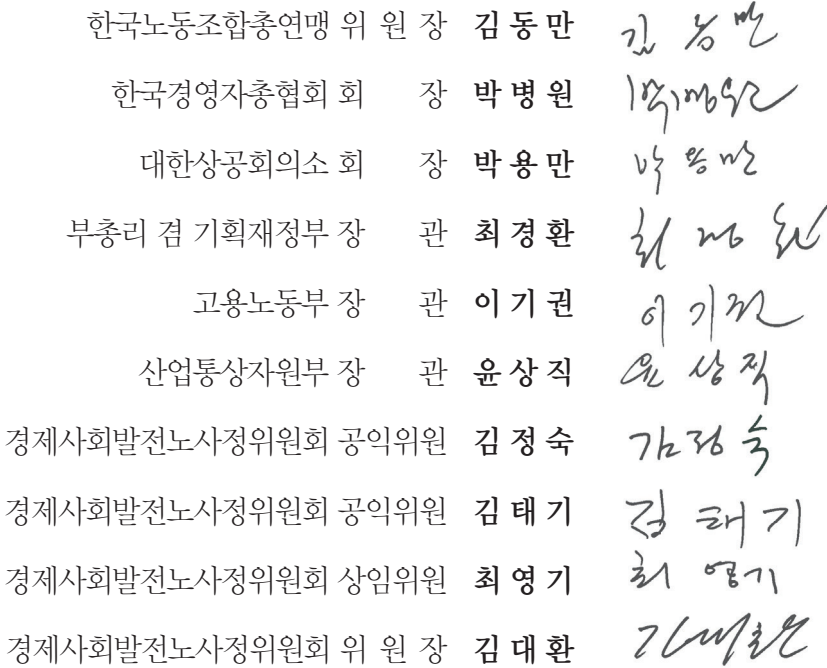 한국노동조합총연맹 위 원 장 김 동 만 김 동 만
한국경영자총협회 회 장 박 병 원 박병원
대한상공회의소 회 장 박 용 만 박 용 만
부총리 겸 기획재정부 장 관 최 경 환 최 경 환
고용노동부 장 관 이 기 권 이 기 권
산업통상자원부 장 관 윤 상 직 윤 상 직
경제사회발전노사정위원회 공익위원 김 정 숙 김 정 숙
경제사회발전노사정위원회 공익위원 김 태 기 김 태 기
경제사회발전노사정위원회 상임위원 최 영 기 최 영 기
경제사회발전노사정위원회 위 원 장 김 대 환 김대환